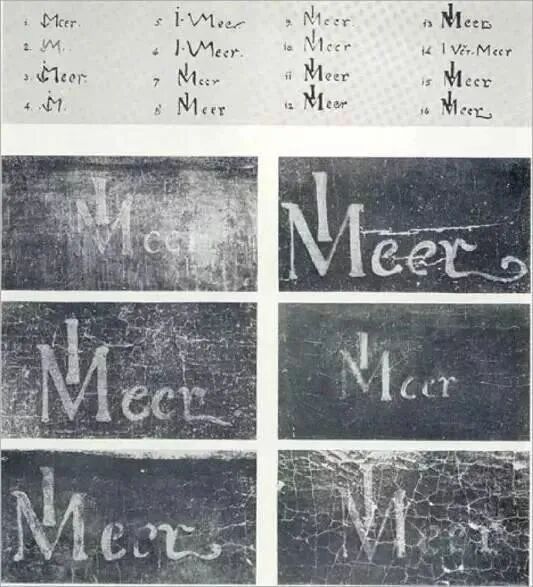 1. IMeer.
2. IM.
3. IMeer.
4. IM.
5. i·VMeer
6. I·VMeer.
7 IMeer
8 IMeer
9. IMeer.
10. IMeer
11 IMeer
12 IMeer
13 IMeer
14 I Vër. Meer
15 IMeer
16 IMeer
IMeer
IMeer
IMeer
IMeer
IMeer
IMeer